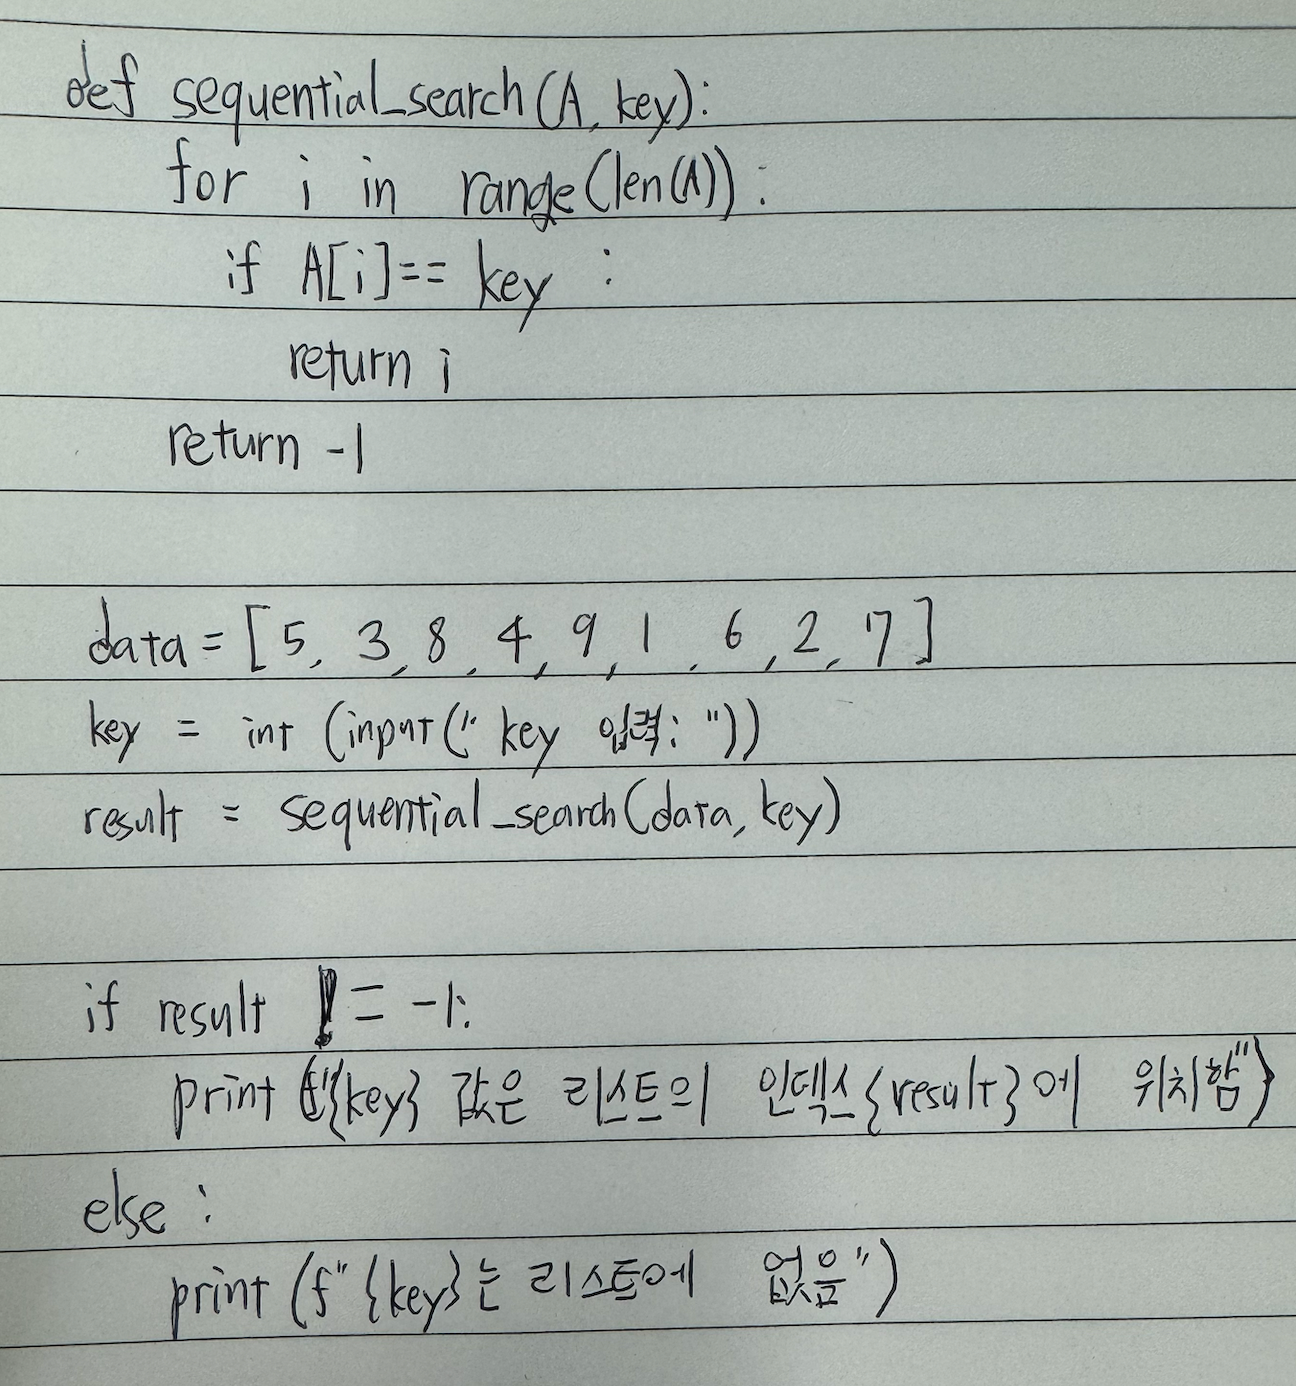 def sequential_search(A, key):
for i in range(len(A)):
if A[i]== key :
return i
return -1
data = [5, 3, 8, 4, 9, 1, 6, 2, 7]
key = int (input(" key 입력: "))
result = sequential_search(data, key)
if result != -1:
print (f"{key} 값은 리스트의 인덱스{result}에 위치함")
else :
print (f" {key}는 리스트에 없음")